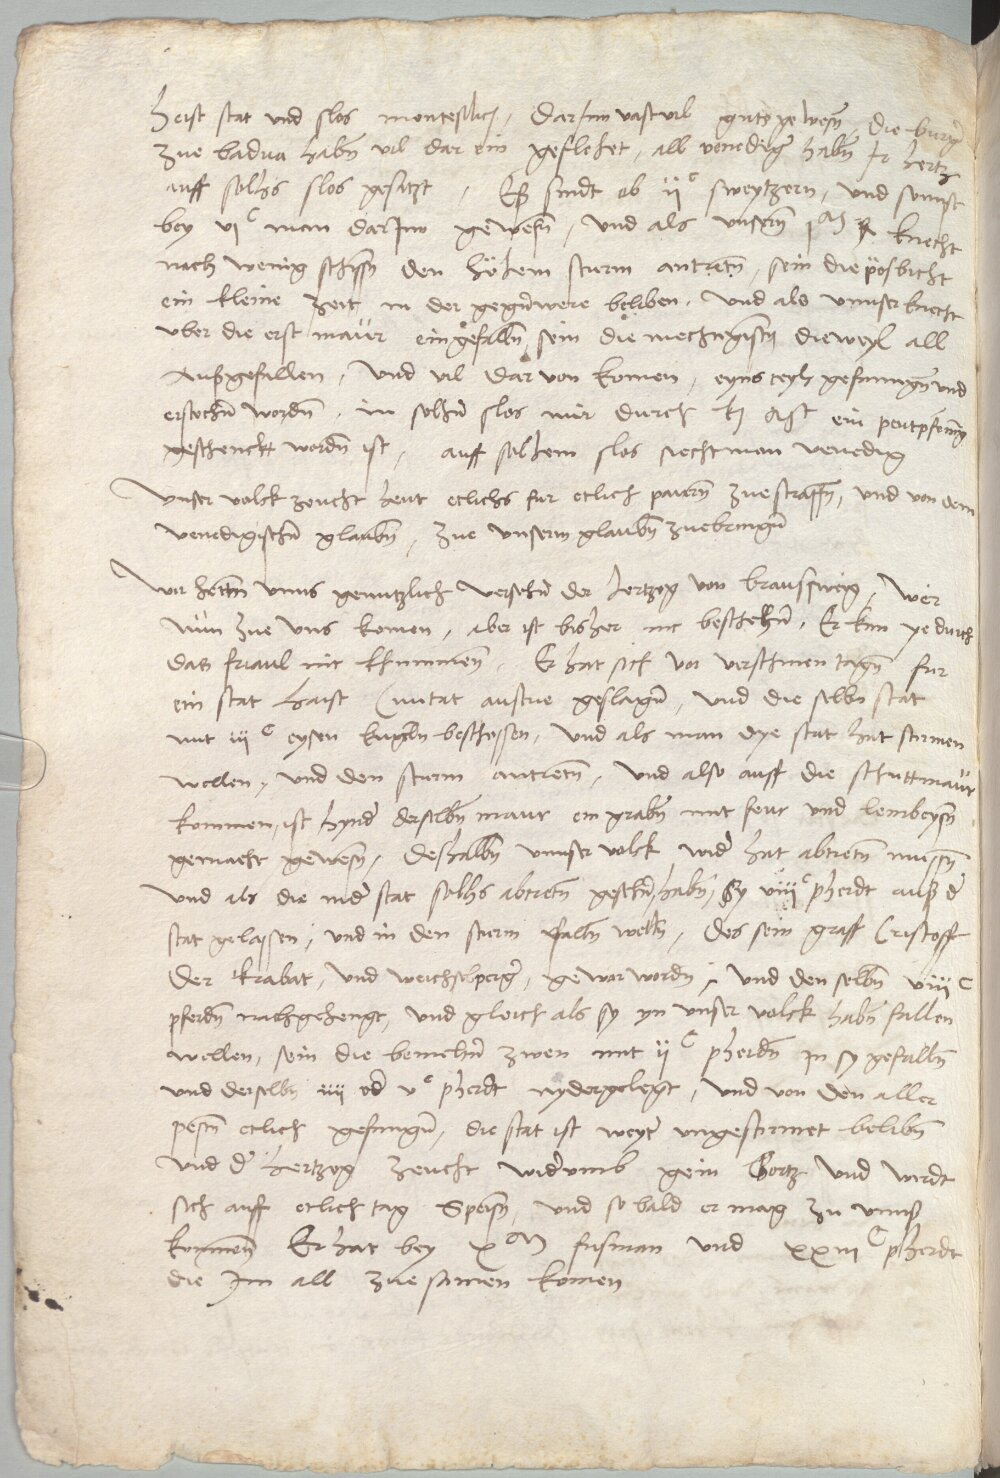 heist stat und slos montesilich, darinn vast vil guts gewesn, die burger
zue badua habn vil dar ein geflehet, all venediger habn Ir hertz
auff solhs slos gesatzt, Es sindt ob ii c sweytzern, und sunnst
bey vi c man darInn gewesn, und als unsern i M knecht
nach wenig schissn den höhern sturm antretn, sein die pösbicht
ein kleine zeit in der gegenwere beliben. Und als unnser knecht
uber die erst maur eingefalln, sein die dieweyl all
Außgefallen, Und vil dar von komen, eyns teyls gefanngen und
erstochen wordn, in solhen slos mir durch ein peutpfening
geschenckt wordn ist, auff solhem slos siecht man venedig
Unser volck zeucht heut etlichs fur etlich pauern zue straffn, und von dem
venedigischen glaubn, zue unserm glaubn zuebringen
Wir hetten unns genntzlich versehen der hertzog von braunswig, wer
nun zue uns komen, aber ist bisher nit beschehen. Er kan ye durch
das friaul nit khummen. Er hat sich vor verschinen tagen fur
ein stat haist Civitat austrie geslagen, und die selbn stat
mit iii c eysen kugeln beschossen, Und als man dye stat hat sturmen
wellen, und den sturm antretn, Und also auff die schuttmaur
kommen, ist hynder derselbn maur ein grabn mit feur und
gemacht gewesn, deshalbn unnser volck wider hat abtretn muessn
Und als die in der stat solhs abtretn gesehen habn, Sy viii c pherdt aus der
stat gelassen, und in den sturm falln welln, des sein graff Cristoff
der krabat, und weichselperger, gewar wordn, und den selbn viii c
pferdn nachgehengt, und gleich als sy yn unser volck habn fallen
wellen, sein die bemelten zwen mit ii c pherdn in sy gefalln
und derselbn iiii oder v c pherdt nydergelegt, Und von den aller
pestn etlich gefangen, die stat ist weyter ungesturmet belibn
Und der hertzog zeucht widerumb gein Gortz und wirdt
sich auff etlich tag Speisn, und so bald er mag zu unns
kommen Er hat bey x M fusman und xxiii c pherdt
die Im all zue samen komen